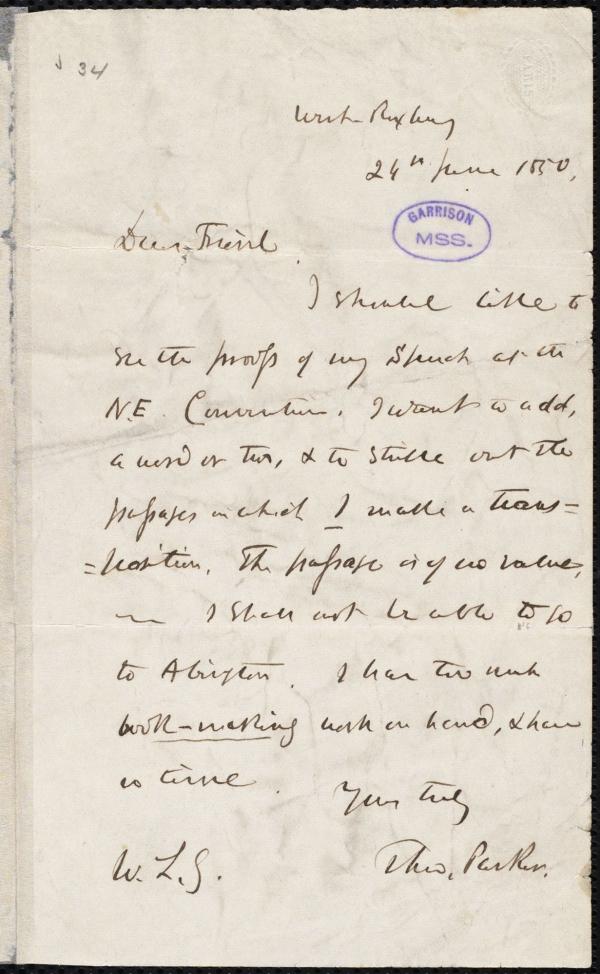 34
PARIS
West Roxbury
24th June 1850,
GARRISON
MSS.
Dear Friend
I should like to
see the proofs of my Speech at the
N.E. Convention. I want to add,
a word or two, & to strike out the
passages in which I make a trans=
=position. The passage is of no value,
— I shall not be able to go
to Abington. I have too much
book-making work on hand, & have
no time.
Yours truly
W. L. G. Theo. Parker.